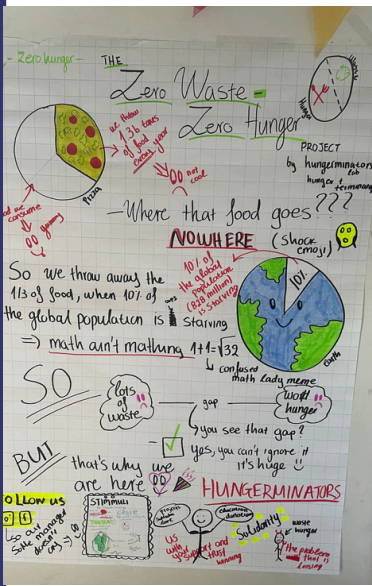 - Zero hunger -
THE
Zero Waste -
Zero Hunger
PROJECT
by hungerminators
Hunger
we throw
of food
every year
not
cool
Pizza
we consume
yummy
- Where that food goes ???
NOWHERE (shock
emoji)
10% of
the global
population
(828 million)
is starving
10%
So we throw away the
1/3 of food, when 10% of
the global population is starving
was
=> math ain't mathing 1+1=√32
confused
math lady meme
Earth
SO
lots
of
waste
gap
world
hunger
you see that gap?
Yes, you can't ignore it
it's huge
BUT
that's why we
are here
HUNGERMINATORS
OLLOW US
STIMULI
so our
manager
doesn't
cry
education
Solidarity
US
with your
support and trust
winning
waste
hunger
the problem
that is
losing